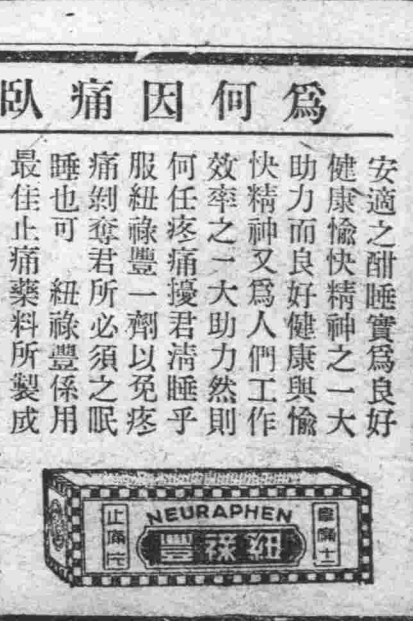 為何因痛臥
安適之酣睡實為良好
健康愉快精神之一大
助力而良好健康與愉
快精神又為人們工作
效率之一大助力然則
何任疼痛擾君清睡乎
服紐祿豐一劑以免疼
痛剝奪君所必須之眠
睡也可　紐祿豐係用
最佳止痛藥料所製成
NEURAPHEN
紐祿豐
止痛片